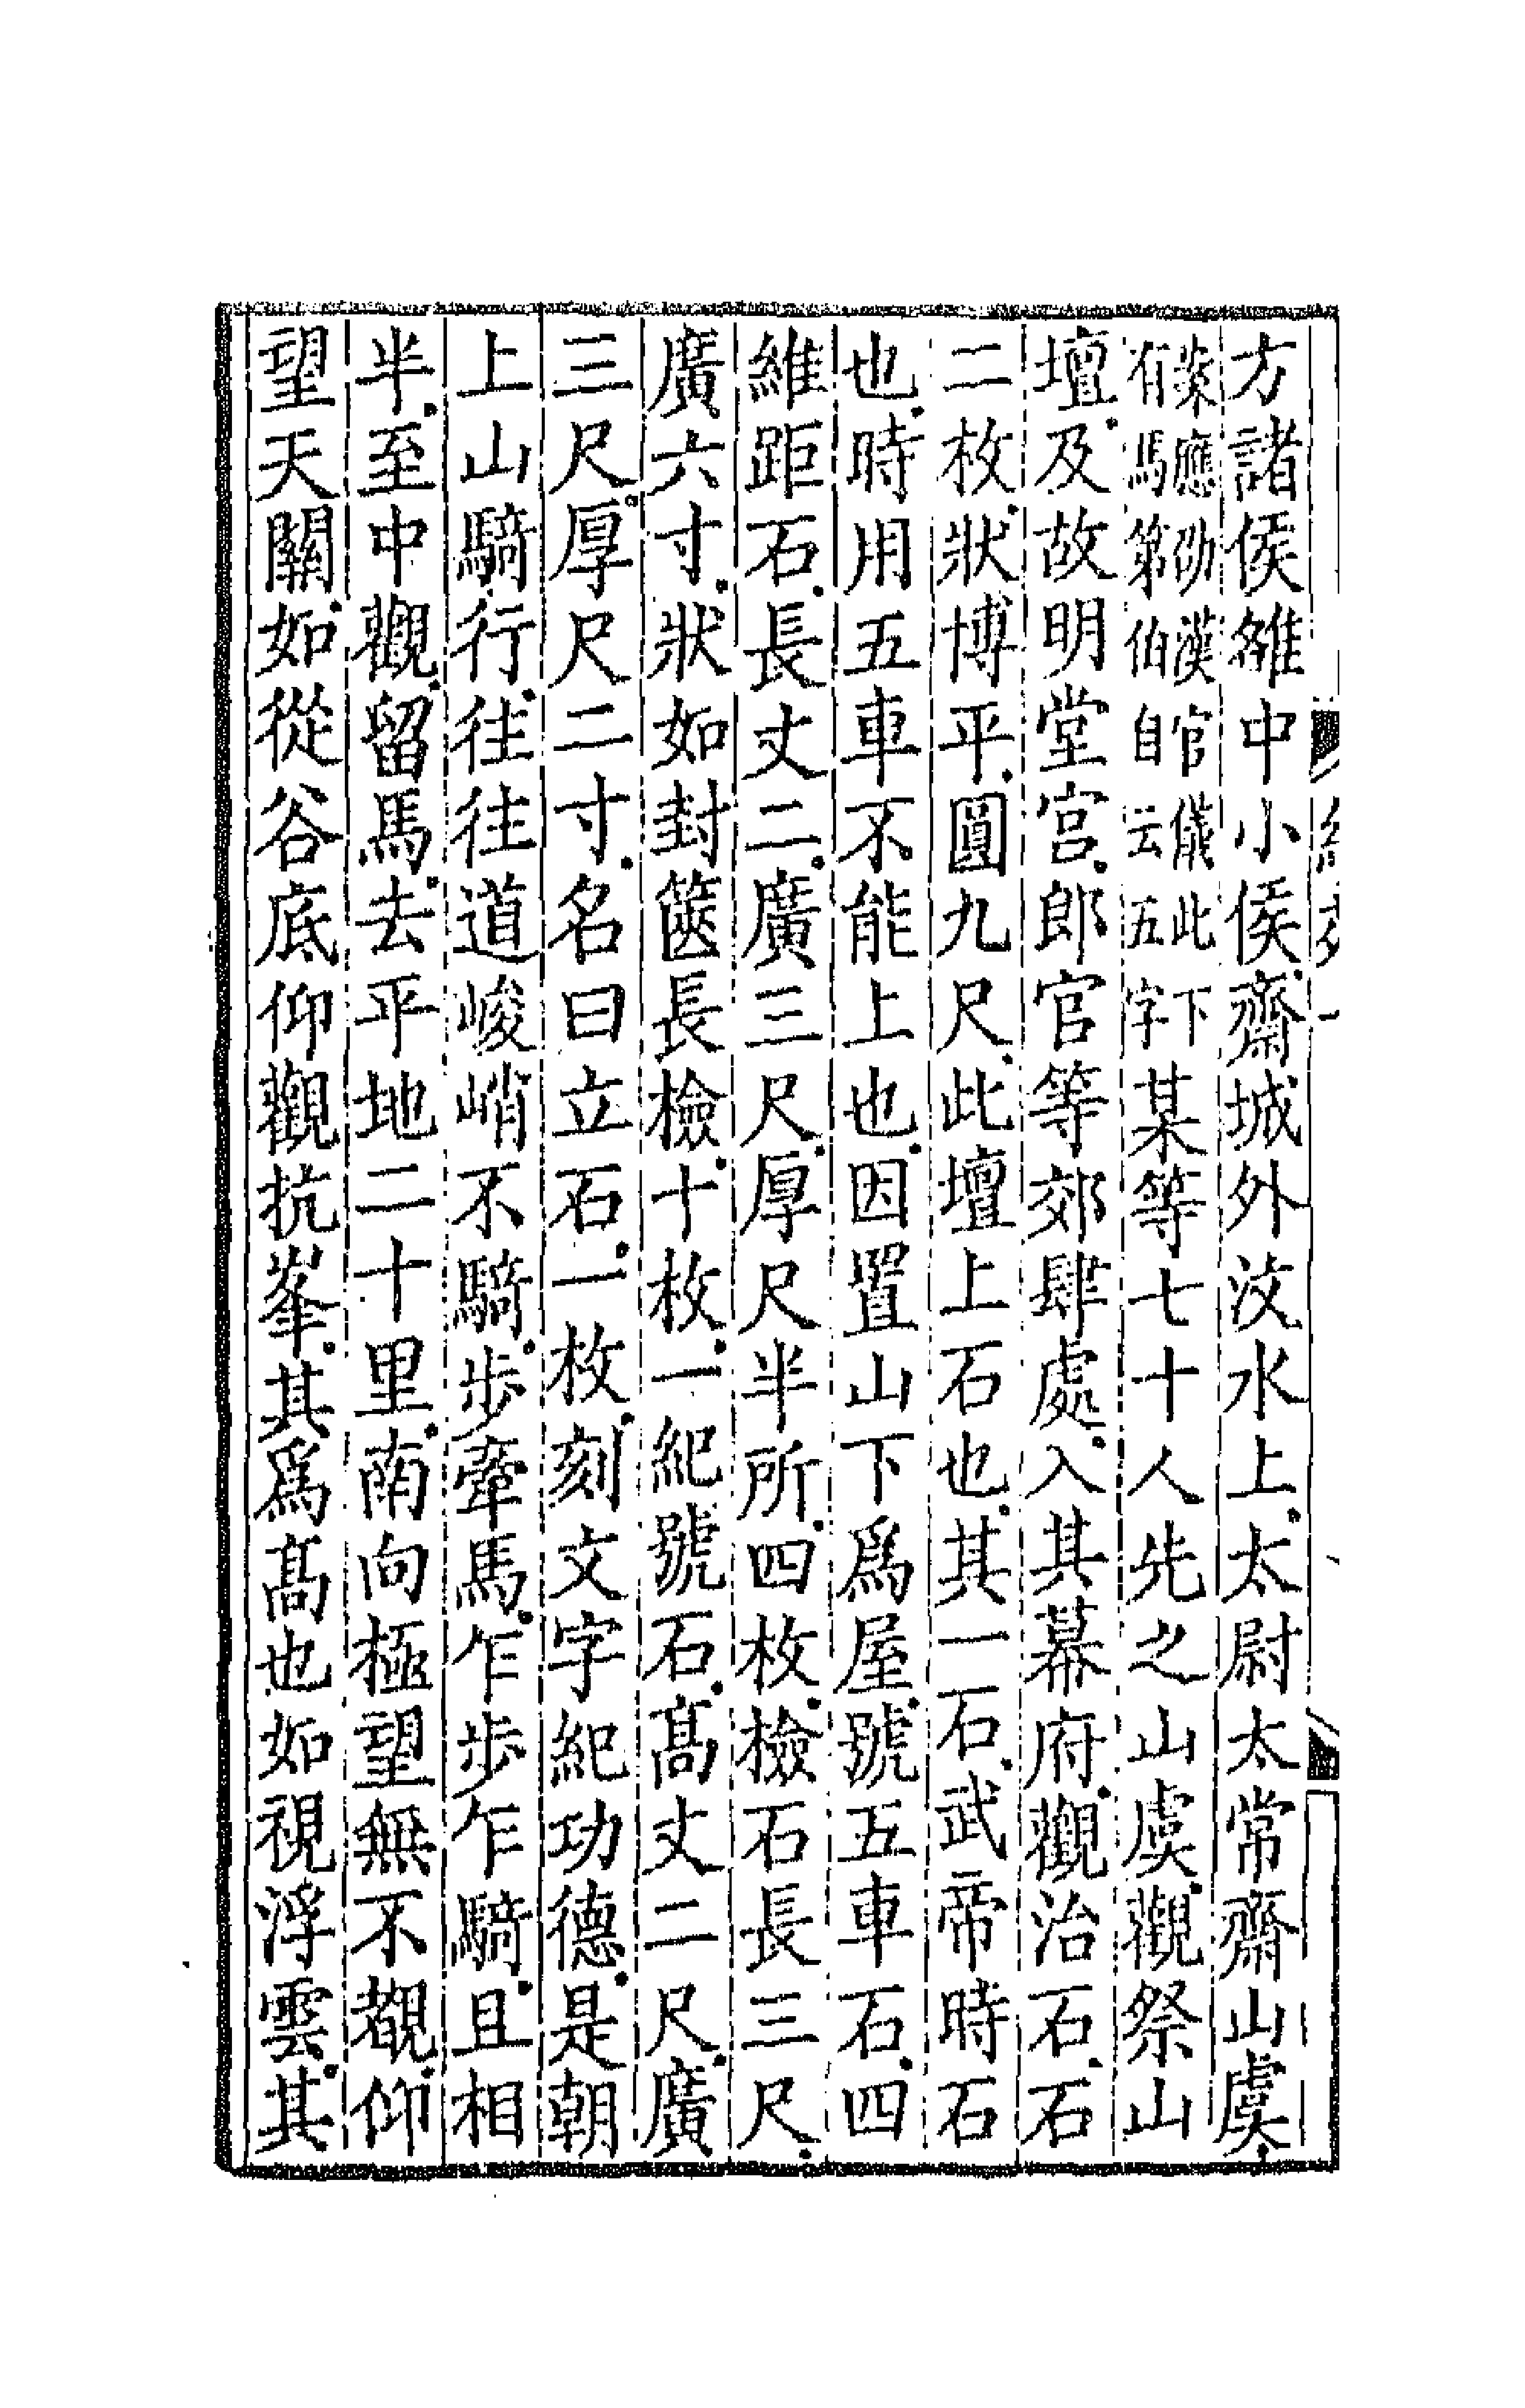 方諸侯雒中小侯齋城外汶水上太尉太常齋山虞
案應劭漢官儀此下有馬第伯自云五字某等七十人先之山虞觀祭山
壇及故明堂宫郎官等郊肆處入其幕府觀治石石
二枚狀博平圓九尺此壇上石也其一石武帝時石
也時用五車不能上也因置山下爲屋號五車石四
維距石長丈二廣三尺厚尺半所四枚檢石長三尺
廣六寸狀如封篋長檢十枚一紀號石高丈二尺廣
三尺厚尺二寸名曰立石一枚刻文字紀功德是朝
上山騎行往往道峻峭不騎步牽馬乍步乍騎且相
半至中觀留馬去平地二十里南向極望無不覩仰
望天關如從谷底仰觀抗峯其爲高也如視浮雲其